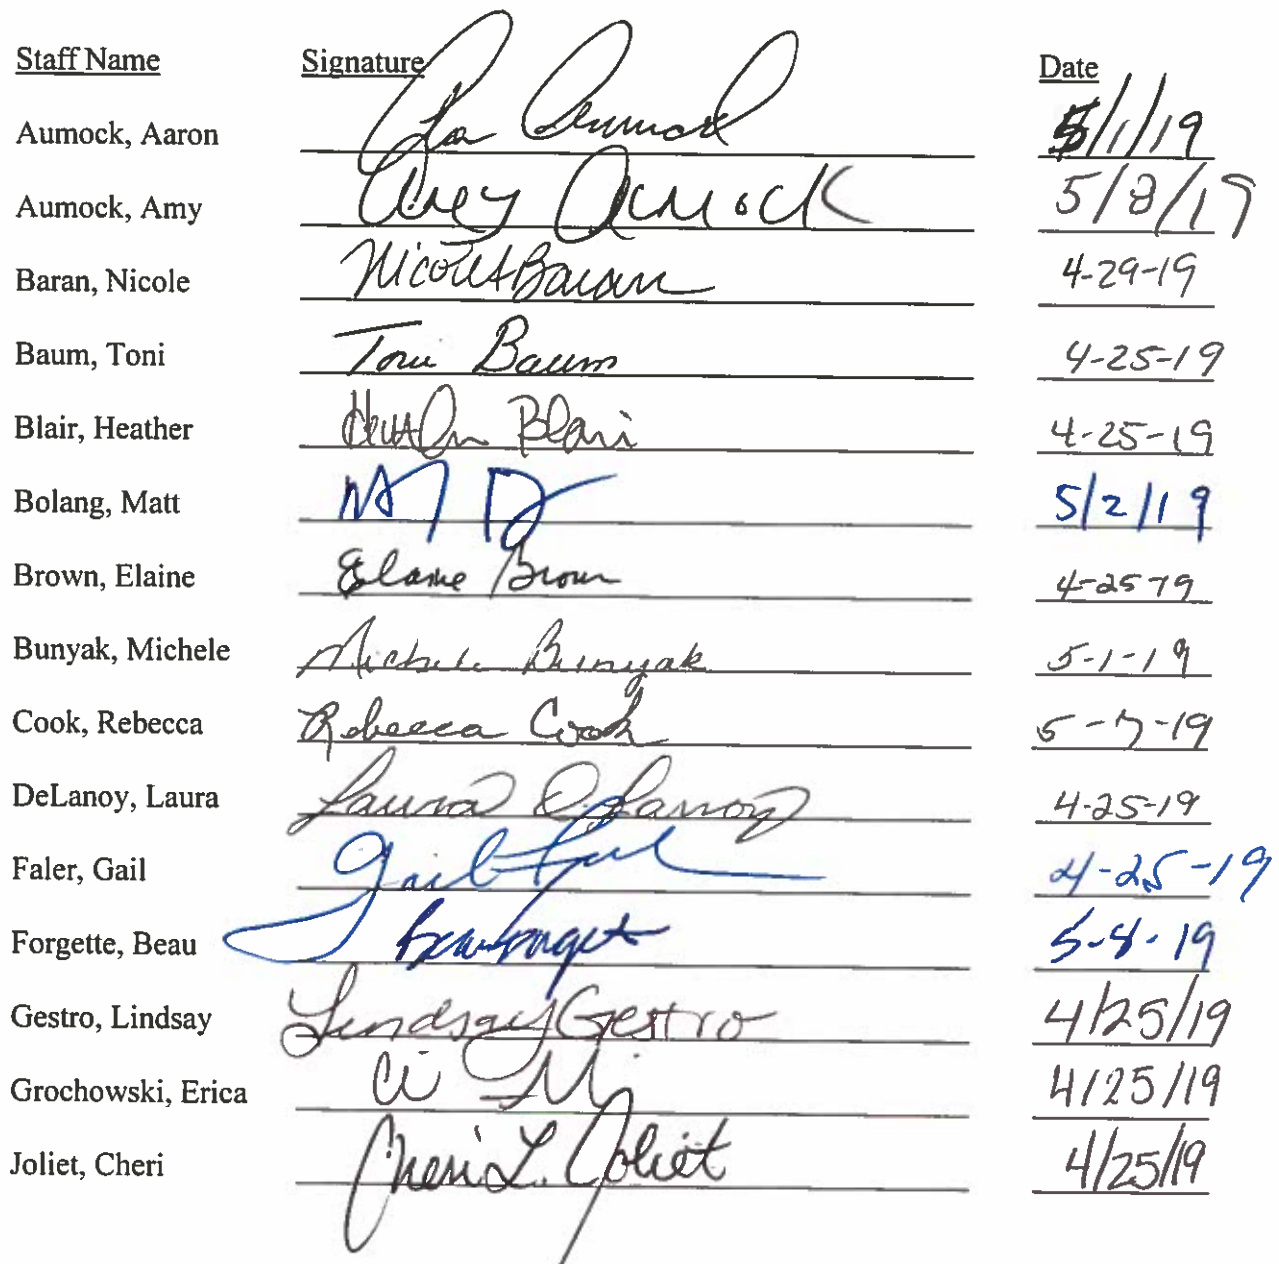 Staff Name Signature Date
Aumock, Aaron 5/1/19
Aumock, Amy Amy Aumock 5/8/19
Baran, Nicole Nicole Baran 4-29-19
Baum, Toni Toni Baum 4-25-19
Blair, Heather Heather Blair 4-25-19
Bolang, Matt 5/2/19
Brown, Elaine Elaine Brown 4-25-19
Bunyak, Michele Michele Bunyak 5-1-19
Cook, Rebecca Rebecca Cook 5-7-19
DeLanoy, Laura Laura DeLanoy 4-25-19
Faler, Gail Gail 4-25-19
Forgette, Beau Beau Forgette 5-8-19
Gestro, Lindsay Lindsay Gestro 4/25/19
Grochowski, Erica 4/25/19
Joliet, Cheri Cheri L. Joliet 4/25/19